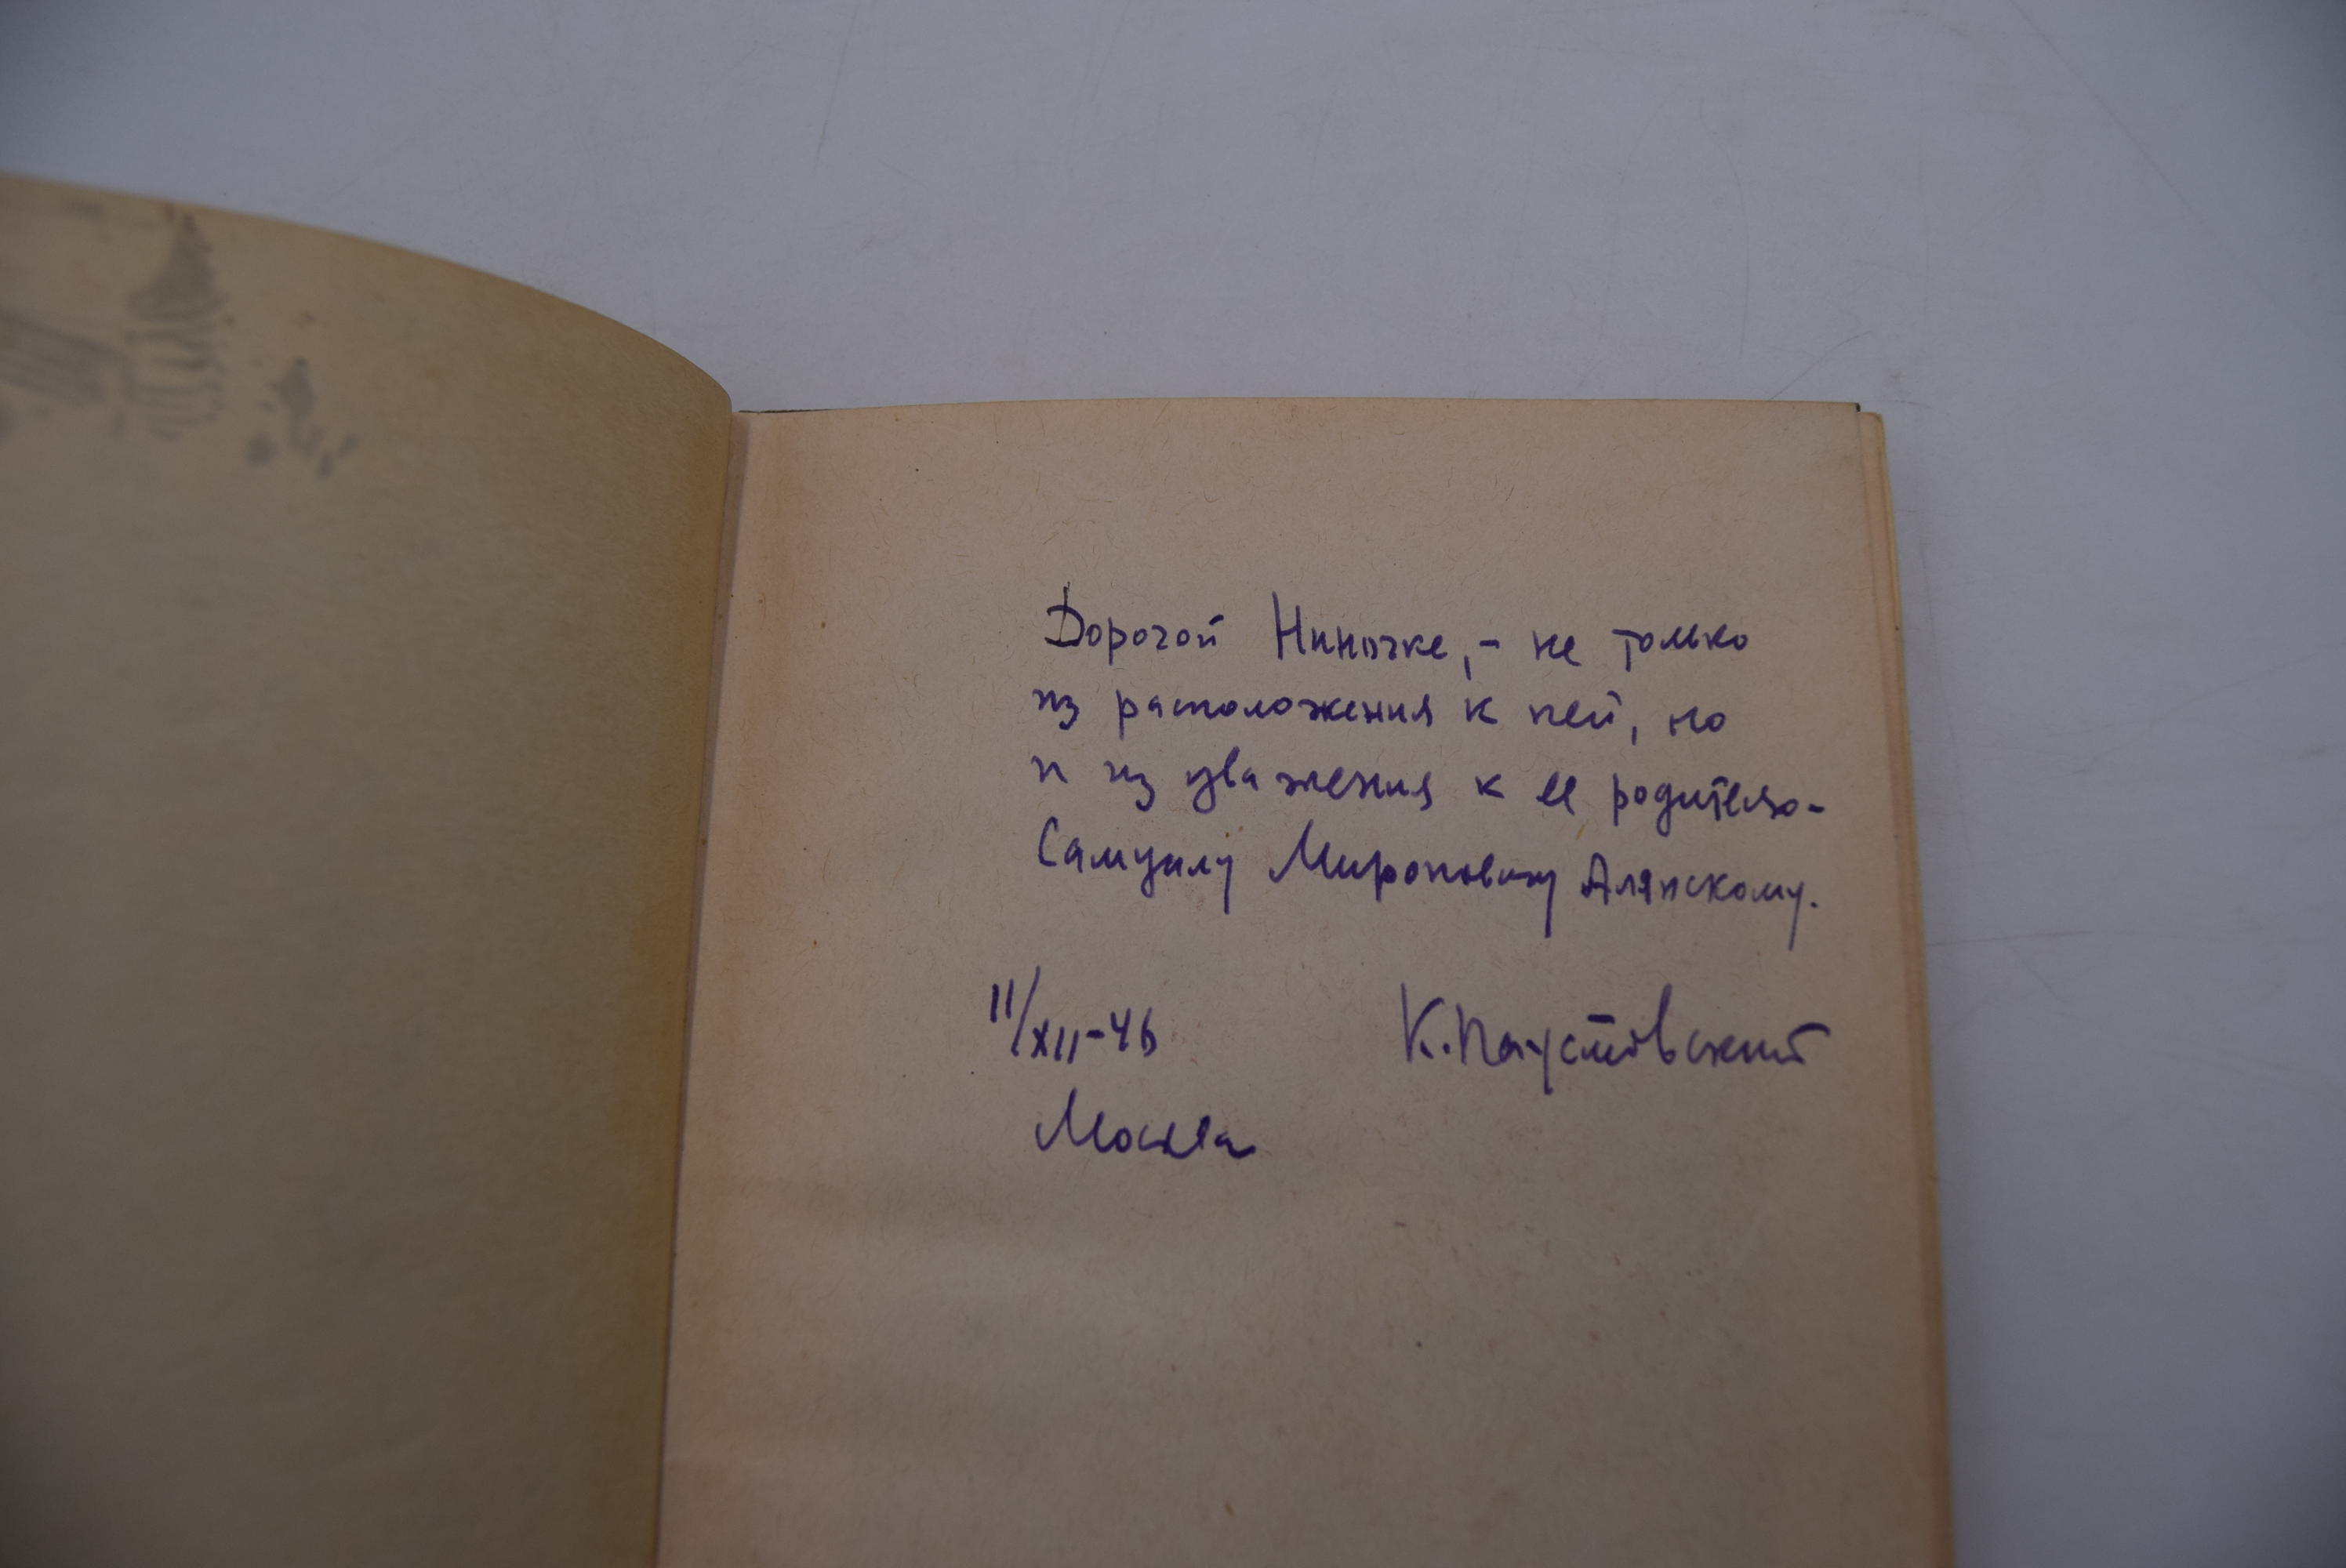 Дорогой Ниночке,- не только
из расположения к ней, но
и из уважения к ее родителю-
Самуилу Мироновичу Алянскому.
11/XII-46
К. Паустовский
Москва